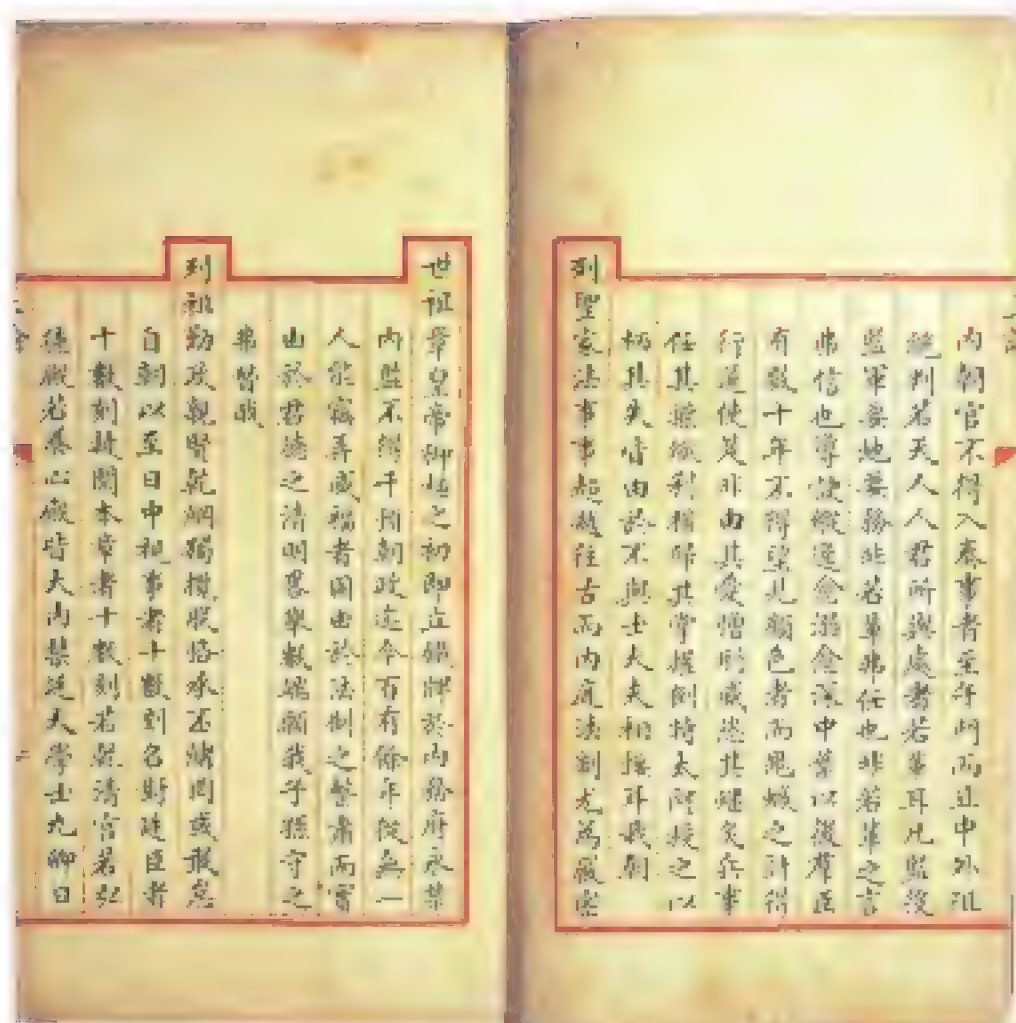 內朝官不得入奏事者至午門而止中外阻
絕判若天人人君所與處者若輩耳凡監
監軍要地要務非若輩弗任也非若輩之言
弗信也導使縱逆愈溺愈深中葉以後群臣
有數十年不得望見顏色者而鬼蜮之計得
行遂使是非由其愛憎刑威恣其燔炙兵事
任其操縱利權歸其掌握倒持太阿授之以
柄其失皆由於不與士大夫相接耳我朝
列聖家法事事超越往古而內庭法制尤為嚴密
世祖章皇帝御極之初即立鐵牌於內務府永禁
內監不得干預朝政迄今百有餘年從無一
人能竊弄威福者固由於法制之整肅而實
由於君德之清明畧舉數端願我子孫守之
弗替哉
列祖勤政親賢乾綱獨攬朕恪承丕緒罔或敢怠
自朝以至日中視事者十數刻召對廷臣者
十數刻披閱本章者十數刻若乾清宮若弘
德殿若養心殿皆大內禁廷大學士九卿日